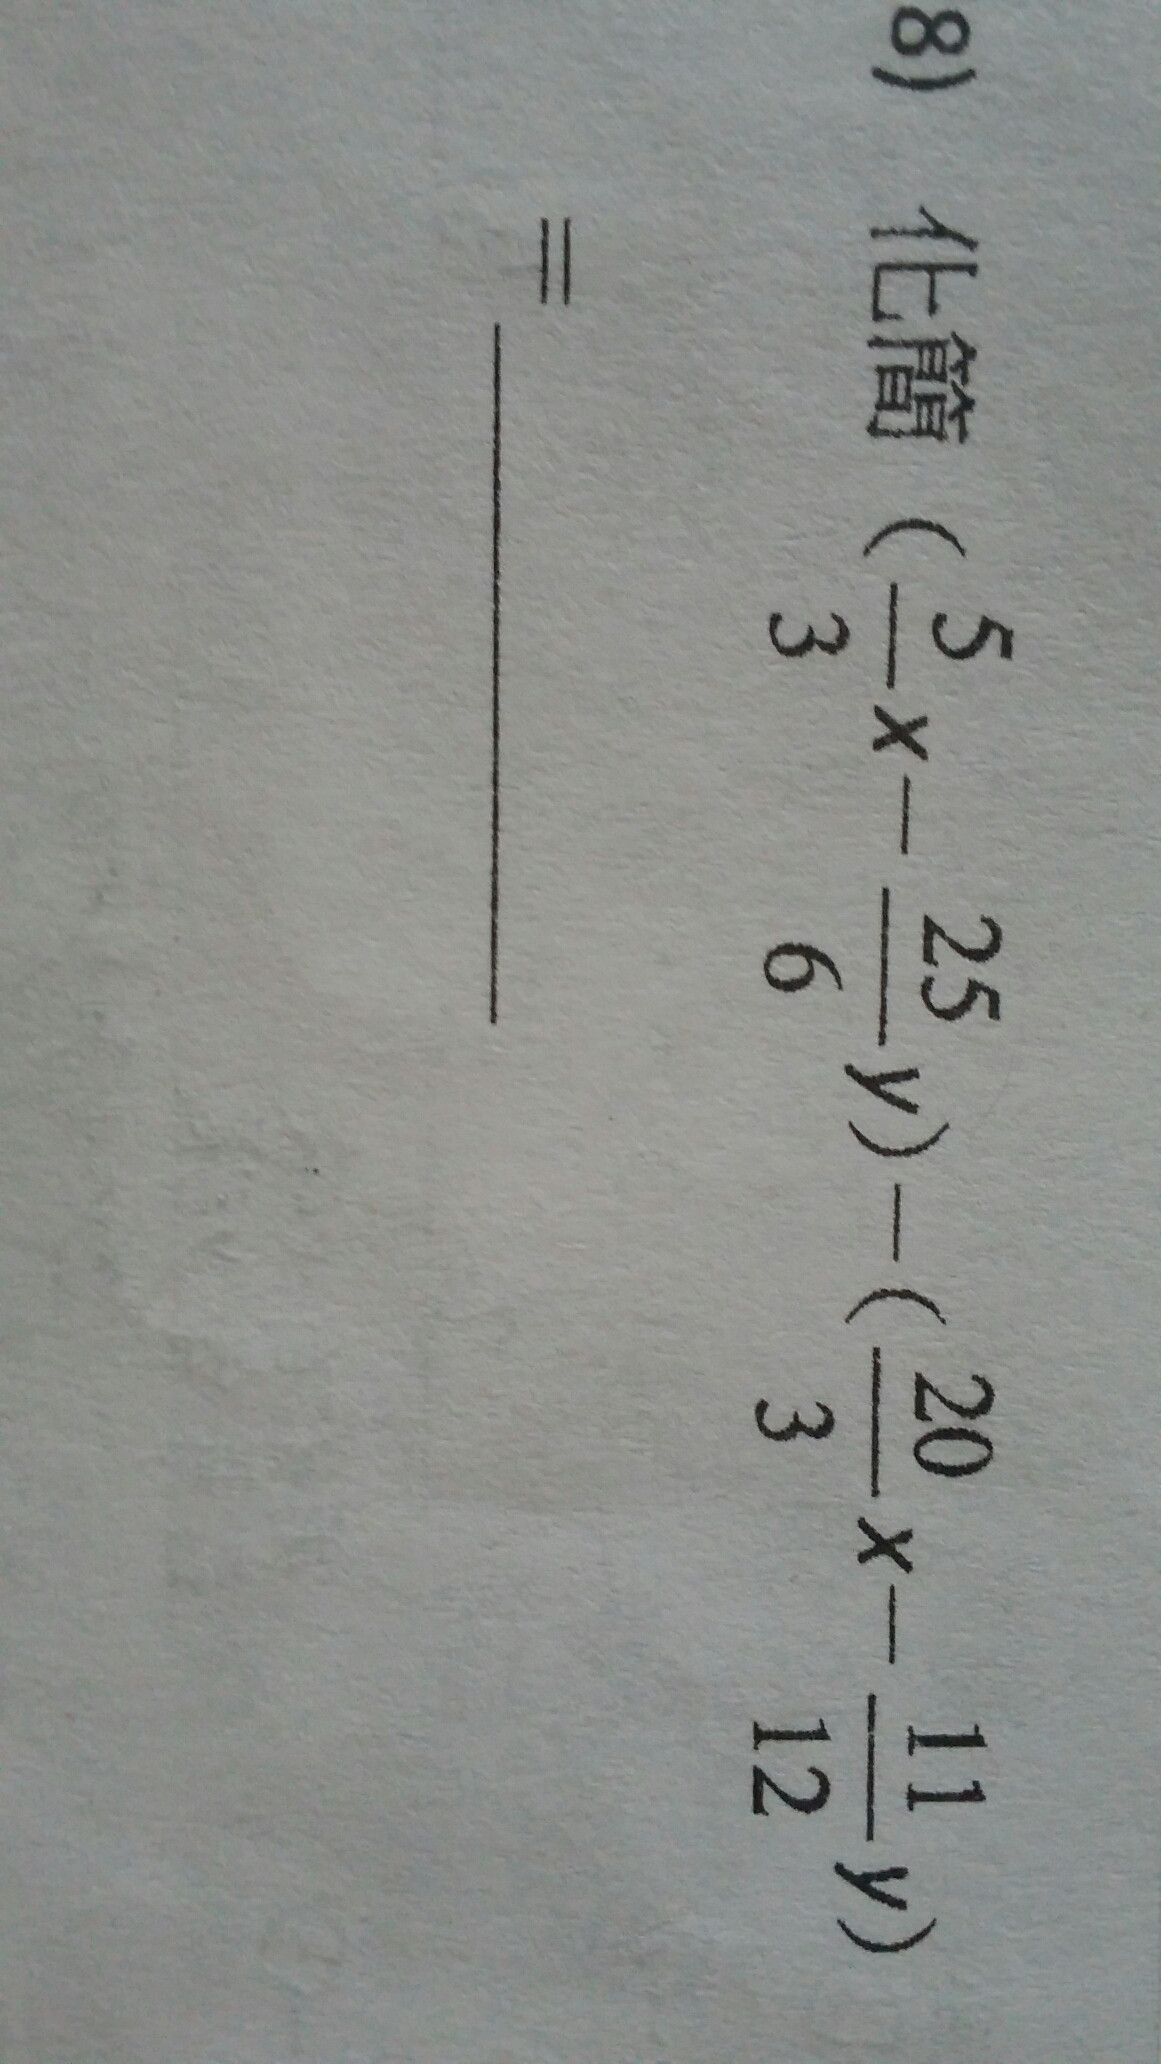 8) 化簡 (5/3 x − 25/6 y) − (20/3 x − 11/12 y)
= ________